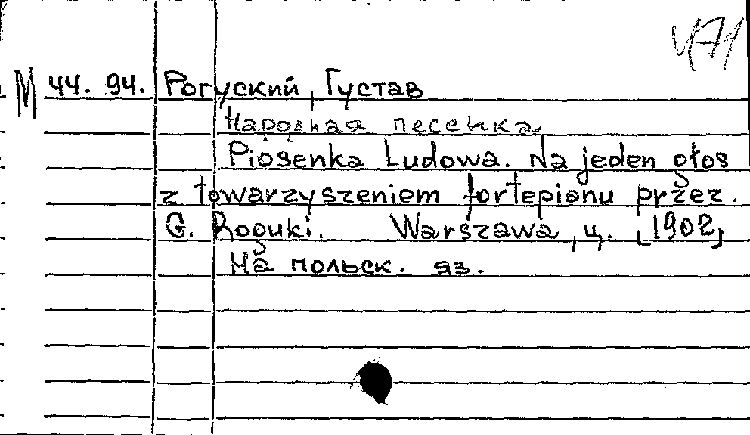 471
М 44. 94. Рогуский, Густав
Народная песенка
Piosenka Ludowa. Na jeden głos
z towarzyszeniem fortepianu przez.
G. Roguki. Warszawa, ц. [1902]
На польск. яз.